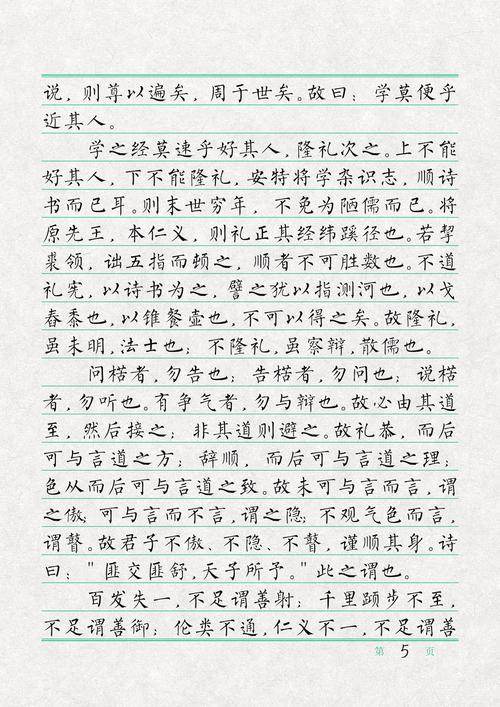 说，则尊以遍矣，周于世矣。故曰：学莫便乎
近其人。
学之经莫速乎好其人，隆礼次之。上不能
好其人，下不能隆礼，安特将学杂识志，顺诗
书而已耳。则末世穷年，不免为陋儒而已。将
原先王，本仁义，则礼正其经纬蹊径也。若挈
裘领，诎五指而顿之，顺者不可胜数也。不道
礼宪，以诗书为之，譬之犹以指测河也，以戈
舂黍也，以锥餐壶也，不可以得之矣。故隆礼，
虽未明，法士也；不隆礼，虽察辩，散儒也。
问楛者，勿告也；告楛者，勿问也；说楛
者，勿听也。有争气者，勿与辩也。故必由其道
至，然后接之；非其道则避之。故礼恭，而后
可与言道之方；辞顺，而后可与言道之理；
色从而后可与言道之致。故未可与言而言，谓
之傲；可与言而不言，谓之隐；不观气色而言，
谓瞽。故君子不傲、不隐、不瞽，谨顺其身。诗
曰："匪交匪舒，天子所予。"此之谓也。
百发失一，不足谓善射；千里蹞步不至，
不足谓善御；伦类不通，仁义不一，不足谓善
第 5 页